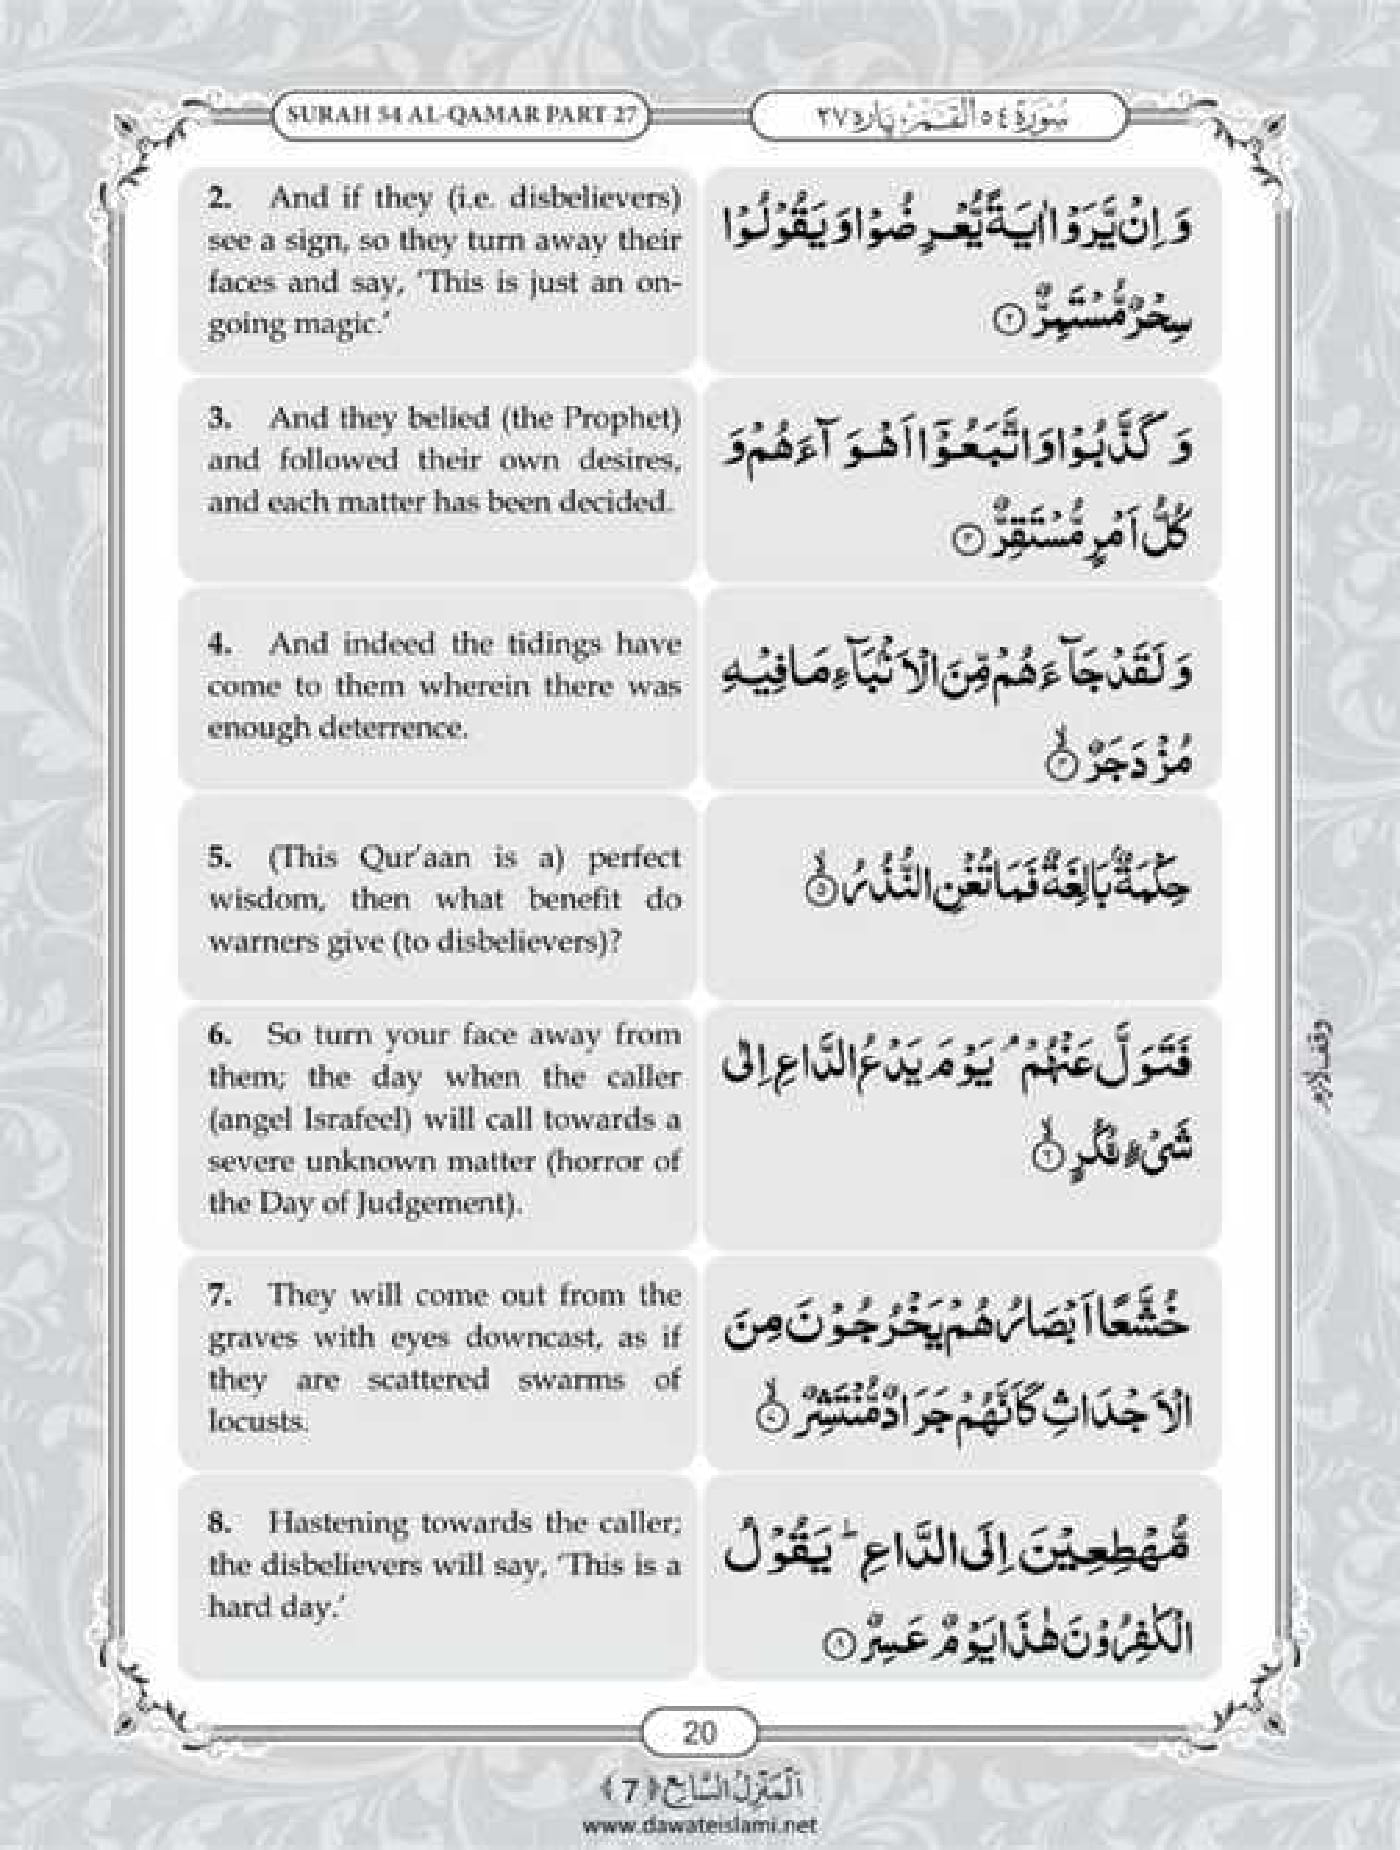 SURAH 54 AL-QAMAR PART 27
سُوْرَةُ ٥٤ اَلْقَمَرُ، پارہ ٢٧
2. And if they (i.e. disbelievers)
see a sign, so they turn away their
faces and say, 'This is just an on-
going magic.'
وَ اِنْ یَّرَوْا اٰیَةً یُّعْرِضُوْا وَ یَقُوْلُوْا
سِحْرٌ مُّسْتَمِرٌّ ﴿۲﴾
3. And they belied (the Prophet)
and followed their own desires,
and each matter has been decided.
وَ كَذَّبُوْا وَ اتَّبَعُوْۤا اَهْوَآءَهُمْ وَ
كُلُّ اَمْرٍ مُّسْتَقِرٌّ ﴿۳﴾
4. And indeed the tidings have
come to them wherein there was
enough deterrence.
وَ لَقَدْ جَآءَهُمْ مِّنَ الْاَنْۢبَآءِ مَا فِیْهِ
مُزْدَجَرٌ ﴿ۙ۴﴾
5. (This Qur'aan is a) perfect
wisdom, then what benefit do
warners give (to disbelievers)?
حِكْمَةٌۢ بَالِغَةٌ فَمَا تُغْنِ النُّذُرُ ﴿ۙ۵﴾
6. So turn your face away from
them; the day when the caller
(angel Israfeel) will call towards a
severe unknown matter (horror of
the Day of Judgement).
فَتَوَلَّ عَنْهُمْ ۘ یَوْمَ یَدْعُ الدَّاعِ اِلٰى
شَیْءٍ نُّكُرٍ ﴿ۙ۶﴾
وقف لازم
7. They will come out from the
graves with eyes downcast, as if
they are scattered swarms of
locusts.
خُشَّعًا اَبْصَارُهُمْ یَخْرُجُوْنَ مِنَ
الْاَجْدَاثِ كَاَنَّهُمْ جَرَادٌ مُّنْتَشِرٌ ﴿ۙ۷﴾
8. Hastening towards the caller;
the disbelievers will say, 'This is a
hard day.'
مُّهْطِعِیْنَ اِلَى الدَّاعِ ؕ یَقُوْلُ
الْكٰفِرُوْنَ هٰذَا یَوْمٌ عَسِرٌ ﴿۸﴾
20
اَلْمَنْزِلُ السَّابِع ﴿7﴾
www.dawateislami.net